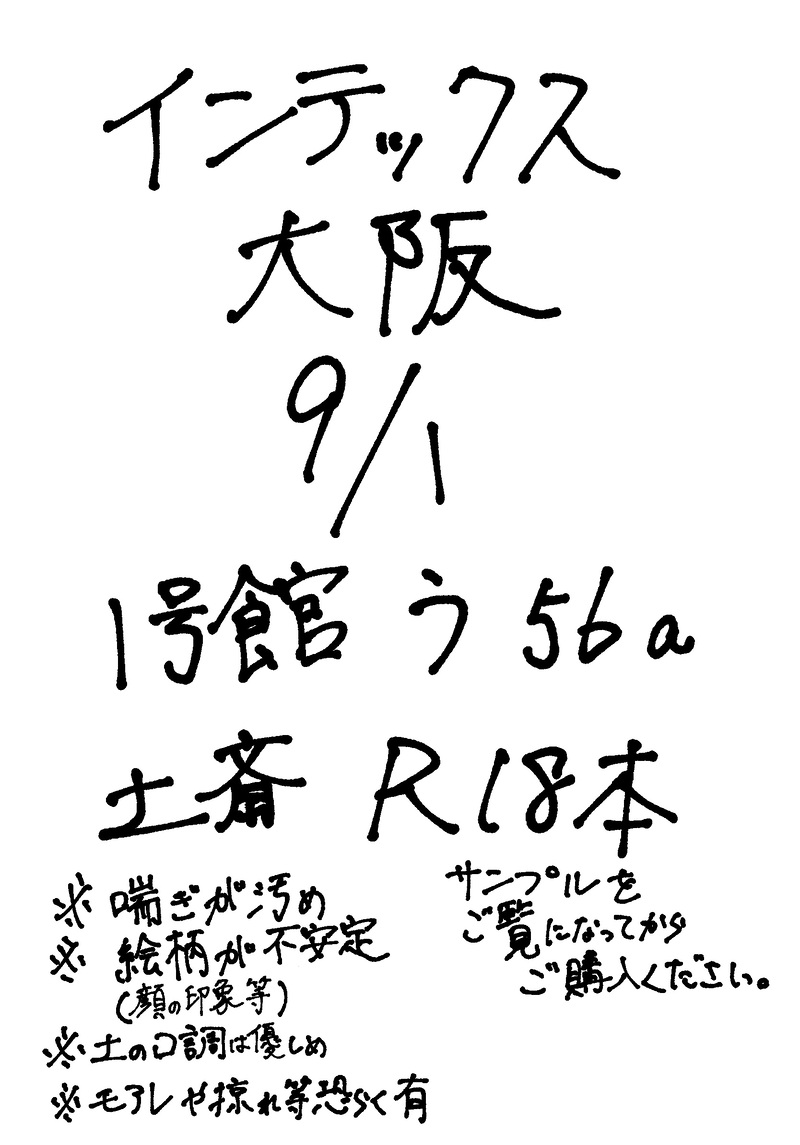 インテックス
大阪
9/1
1号館 う 56a
土斎 R18本
※ 喘ぎが汚め
※ 絵柄が不安定
(顔の印象等)
※土の口調は優しめ
※モアレや掠れ等恐らく有
サンプルを
ご覧になってから
ご購入ください。